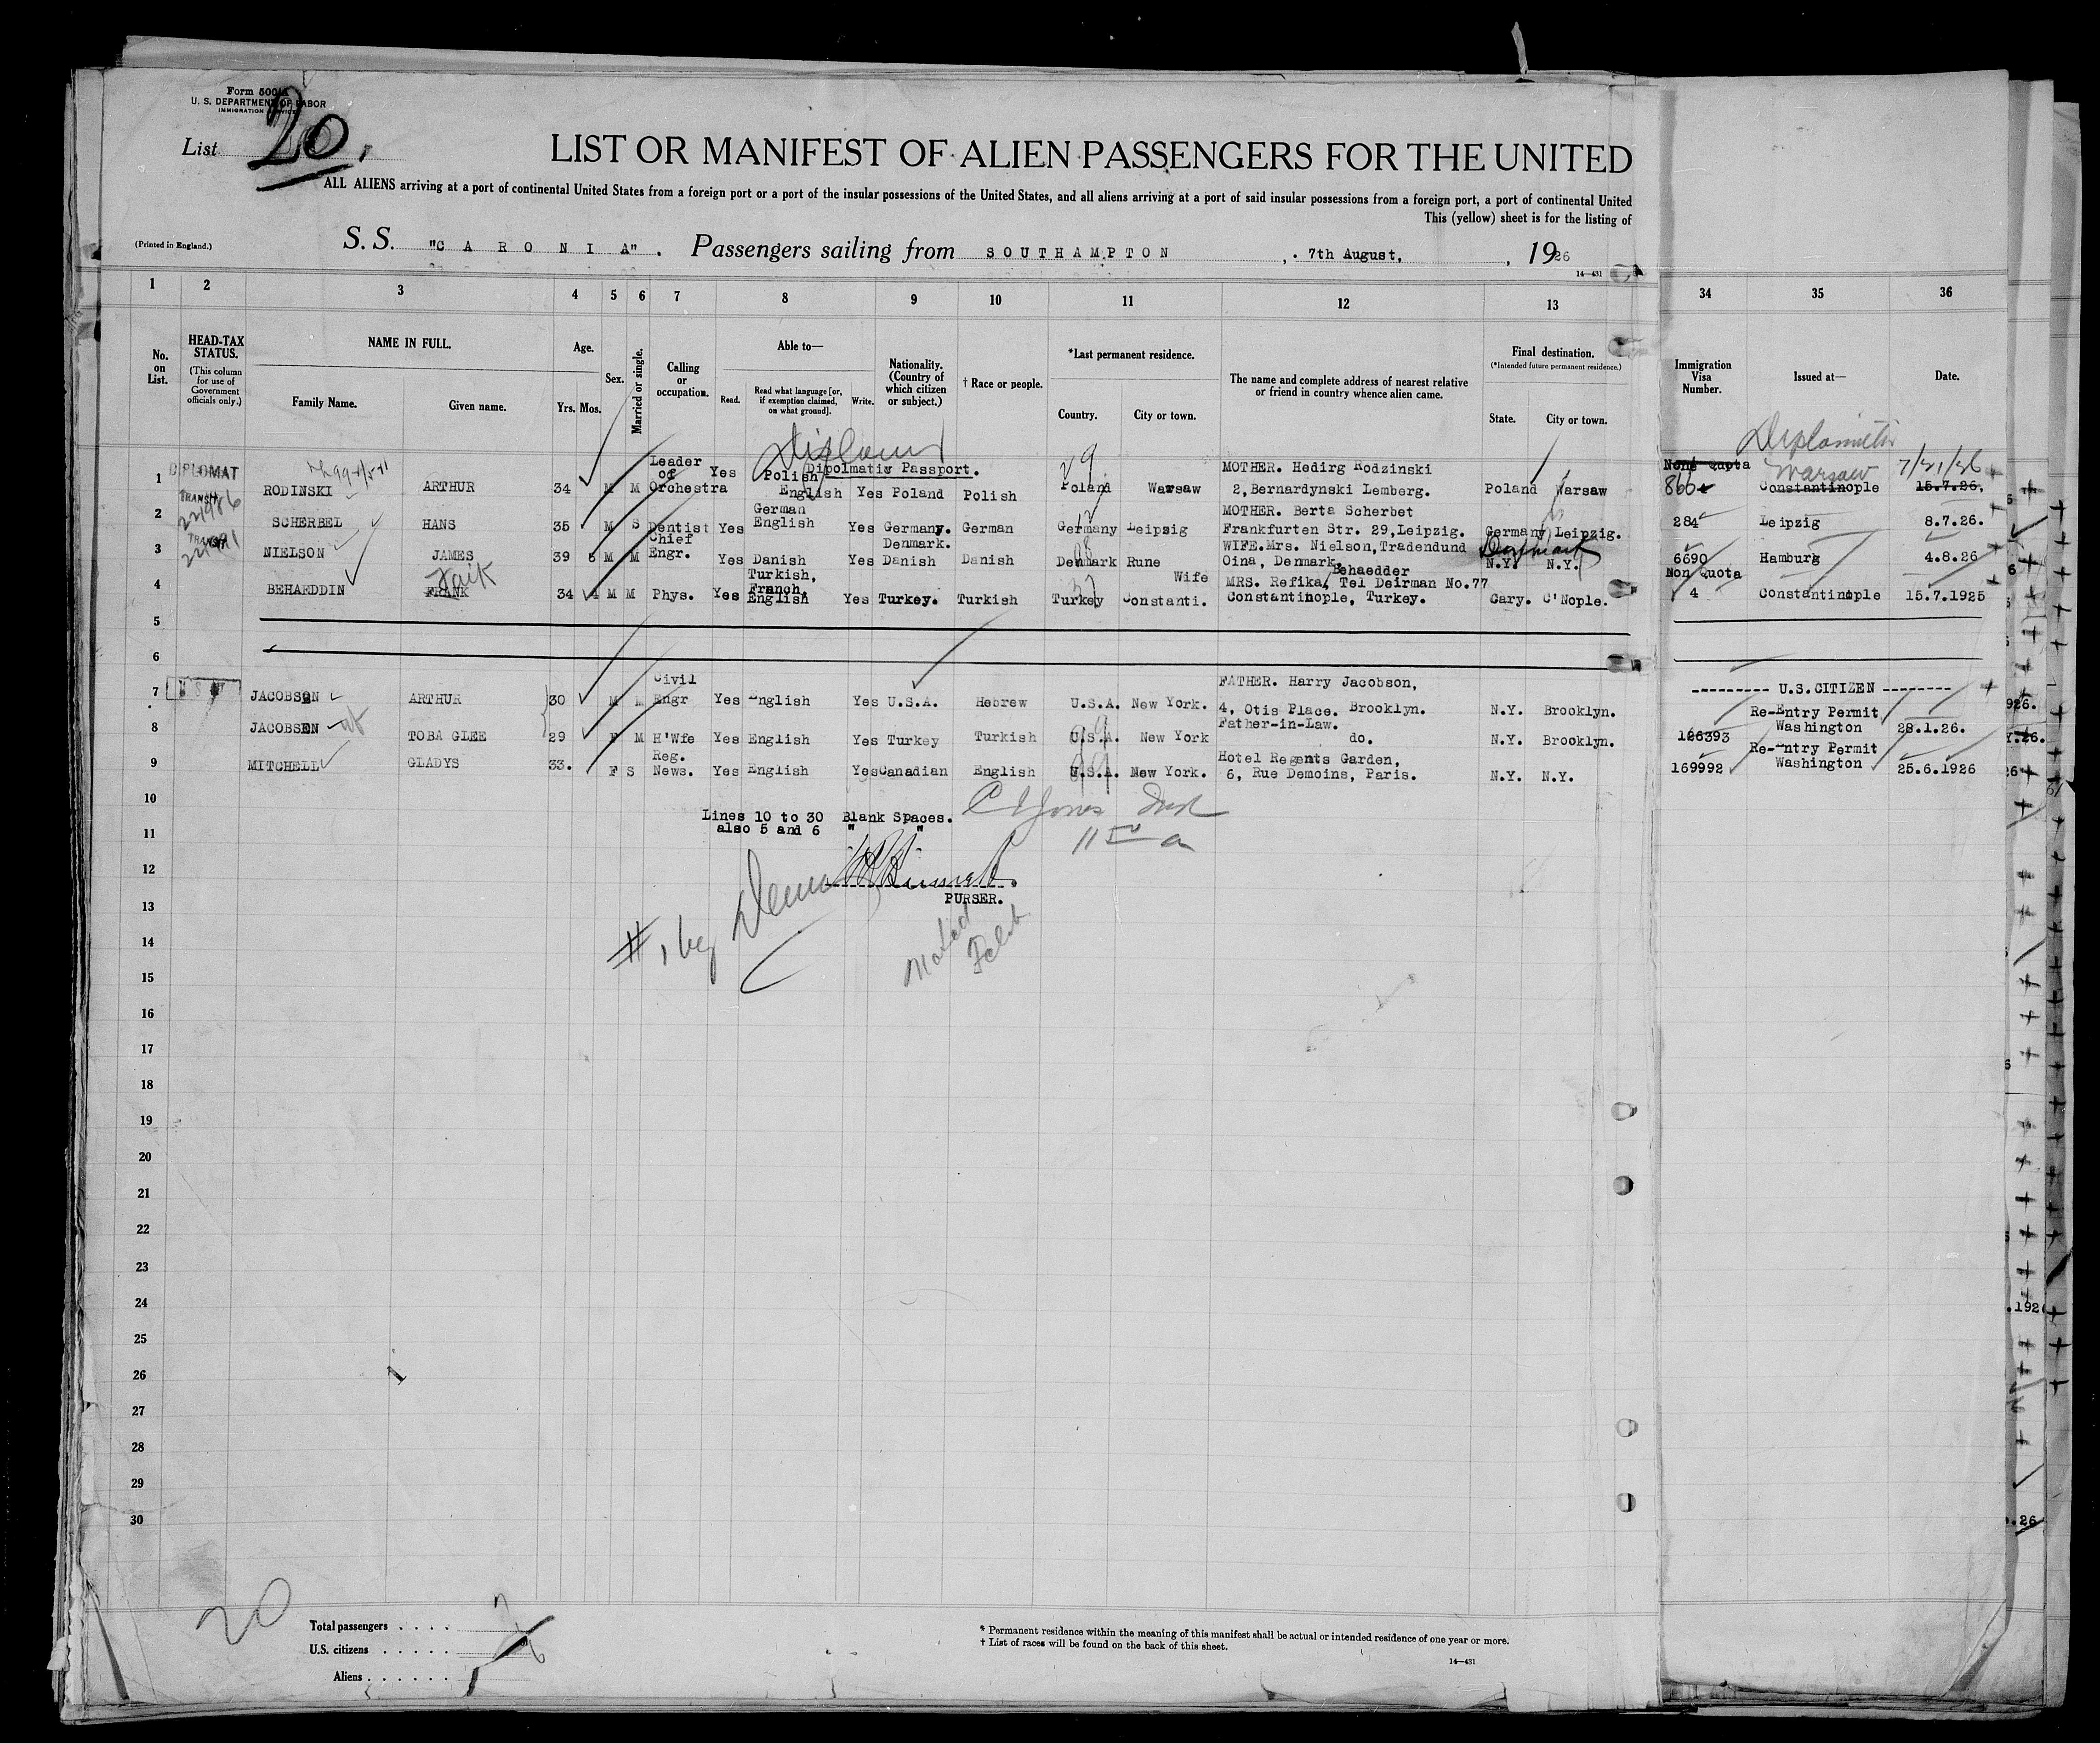 Form 500A
U. S. DEPARTMENT OF LABOR
IMMIGRATION SERVICE
List 20.
LIST OR MANIFEST OF ALIEN PASSENGERS FOR THE UNITED
ALL ALIENS arriving at a port of continental United States from a foreign port or a port of the insular possessions of the United States, and all aliens arriving at a port of said insular possessions from a foreign port, a port of continental United
This (yellow) sheet is for the listing of
(Printed in England.)
S. S. "CARONIA". Passengers sailing from SOUTHAMPTON, 7th August, 1926
14—431
1 2 3 4 5 6 7 8 9 10 11 12 13 34 35 36
No. on List.
HEAD-TAX STATUS.
(This column for use of Government officials only.)
NAME IN FULL.
Family Name. Given name.
Age.
Yrs. Mos.
Sex.
Married or single.
Calling or occupation.
Able to—
Read. Read what language [or, if exemption claimed, on what ground]. Write.
Nationality. (Country of which citizen or subject.)
† Race or people.
*Last permanent residence.
Country. City or town.
The name and complete address of nearest relative or friend in country whence alien came.
Final destination.
(*Intended future permanent residence.)
State. City or town.
Immigration Visa Number.
Issued at—
Date.
Diplomat
Dipolmativ Passport.
1 DIPLOMAT RODINSKI ARTHUR 34 M M Leader of Orchestra Yes Polish English Yes Poland Polish 29 Poland Warsaw MOTHER. Hedirg Rodzinski 2, Bernardynski Lemberg. Poland Warsaw Non Quota 860 Constantinople Warsaw 15.7.26. 7/21/26
2 TRANSIT SCHERBEL HANS 35 M S Dentist Yes German English Yes Germany. German Germany Leipzig MOTHER. Berta Scherbet Frankfurten Str. 29, Leipzig. Germany Leipzig. 284 Leipzig 8.7.26.
3 TRANSIT NIELSON JAMES 39 5 M M Chief Engr. Yes Danish Yes Denmark. Danish Danish Denmark Rune WIFE. Mrs. Nielson, Tradendund Oina, Denmark. Denmark N.Y. N.Y. 6690 Hamburg 4.8.26
4 BEHAEDDIN FRANK Faik 34 4 M M Phys. Yes Turkish, Franch, English Yes Turkey. Turkish Turkey Constanti. Wife MRS. Refika, Behaedder Tel Deirman No.77 Constantinople, Turkey. Gary. C'Nople. Non Quota 4 Constantinople 15.7.1925
5
6
7 JACOBSON ARTHUR 30 M M Civil Engr Yes English Yes U.S.A. Hebrew U.S.A. New York. FATHER. Harry Jacobson, 4, Otis Place. Brooklyn. N.Y. Brooklyn. --------- U.S. CITIZEN --------
8 JACOBSEN TOBA GLEE 29 F M H'Wfe Yes English Yes Turkey Turkish U.S.A. New York Father-in-Law. do. N.Y. Brooklyn. 126393 Re-Entry Permit Washington 28.1.26.
9 MITCHELL GLADYS 33. F S Reg. News. Yes English Yes Canadian English U.S.A. New York. Hotel Regents Garden, 6, Rue Demoins, Paris. N.Y. N.Y. 169992 Re-Entry Permit Washington 25.6.1926
10
Lines 10 to 30 Blank Spaces.
also 5 and 6 " "
11
12
PURSER.
13
14
15
16
17
18
19
20
21
22
23
24
25
26
27
28
29
30
20
Total passengers . . . .
U.S. citizens . . . . .
Aliens . . . . . .
* Permanent residence within the meaning of this manifest shall be actual or intended residence of one year or more.
† List of races will be found on the back of this sheet.
14—431